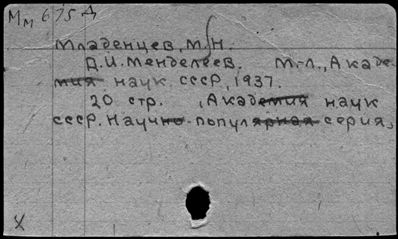 Мм 675 Д
Младенцев, М.Н.
Д.И. Менделеев. М.-Л., Акаде-
мия наук СССР, 1937.
20 стр. (Академия наук
СССР. Научно-популярная серия,
X